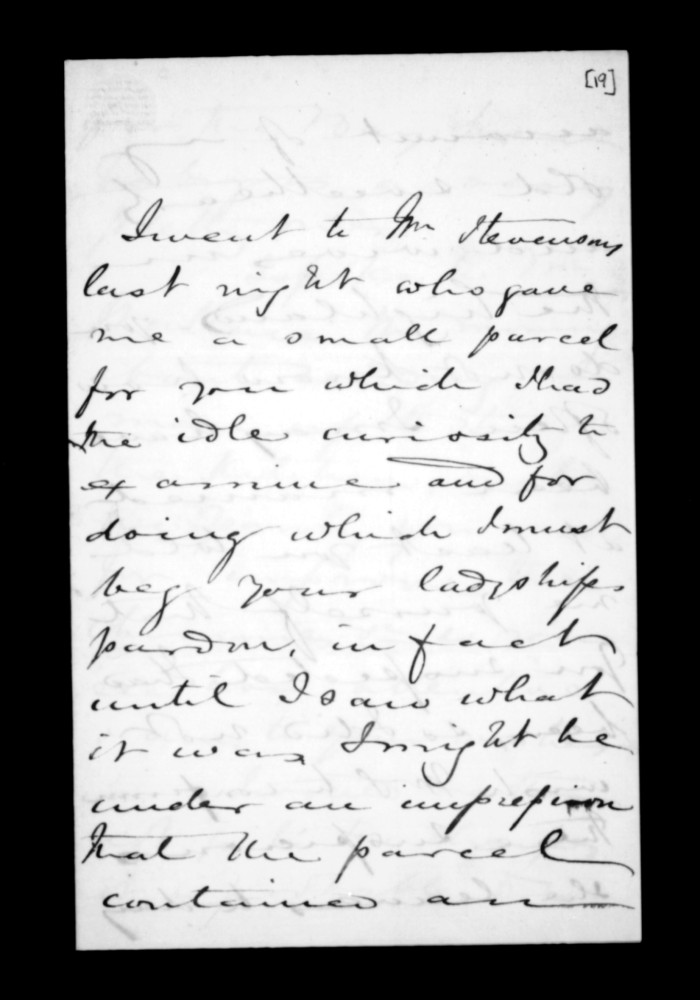 [19]
I went to Mr Stevensons
last night who gave
me a small parcel
for you which I had
the idle curiosity to
examine and for
doing which I must
beg your ladyships
pardon, in fact
until I saw what
it was I might be
under an impression
that the parcel
contained an